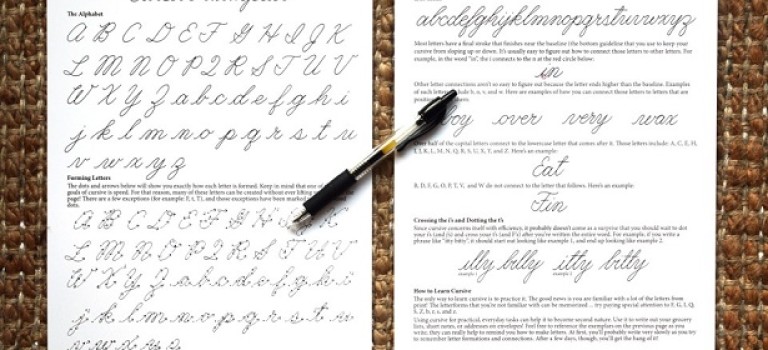 The Alphabet
A B C D E F G H I J K
L M N O P Q R S T U V
W X Y Z a b c d e f g h i
j k l m n o p q r s t u
v w x y z
Forming Letters
The dots and arrows below will show you exactly how each letter is formed. Keep in mind that one of
goals of cursive is speed. For that reason, many of these letters can be created without ever lifting
page! There are a few exceptions (for example: F, t, T), and those exceptions have been marked
dots.
A B C D E F G H I K
L M N O P Q R S T U V
W X Y Z a b c d e f g h i
j k l m n o p q r s t u
v w x y z
abcdefghijklmnopqrstuvwxyz
Most letters have a final stroke that finishes near the baseline (the bottom guideline that you use to keep your
cursive from sloping up or down. It's usually easy to figure out how to connect those letters to other letters. For
example, in the word "in", the i connects to the n at the red circle below:
in
Other letter connections aren't so easy to figure out because the letter ends higher than the baseline. Examples
of such letters include b, o, v, and w. Here are examples of how you can connect those letters to letters that are
boy over very wax
Over half of the capital letters connect to the lowercase letter that comes after it. Those letters include: A, C, E, H,
I, J, K, L, M, N, Q, R, S, U, X, Y, and Z. Here's an example:
Eat
B, D, F, G, O, P, T, V, and W do not connect to the letter that follows. Here's an example:
Fin
Crossing the t's and Dotting the i's
Since cursive concerns itself with efficiency, it probably doesn't come as a surprise that you should wait to dot
your i's (and j's) and cross your t's (and F's) after you've written the entire word. For example, if you write a
phrase like "itty bitty", it should start out looking like example 1, and end up looking like example 2.
itty bitty itty bitty
example 1 example 2
How to Learn Cursive
The only way to learn cursive is to practice it. The good news is you are familiar with a lot of the letters from
print! The letterforms that you're not familiar with can be memorized ... try paying special attention to F, G, I, Q,
S, Z, b, r, s, and z.
Using cursive for practical, everyday tasks can help it to become second nature. Use it to write out your grocery
lists, short notes, or addresses on envelopes! Feel free to reference the exemplars on the previous page as you
write; they can really help to remind you how to make letters. At first, you'll probably write very slowly as you try
to remember letter formations and connections. After a few days, though, you'll get the hang of it!